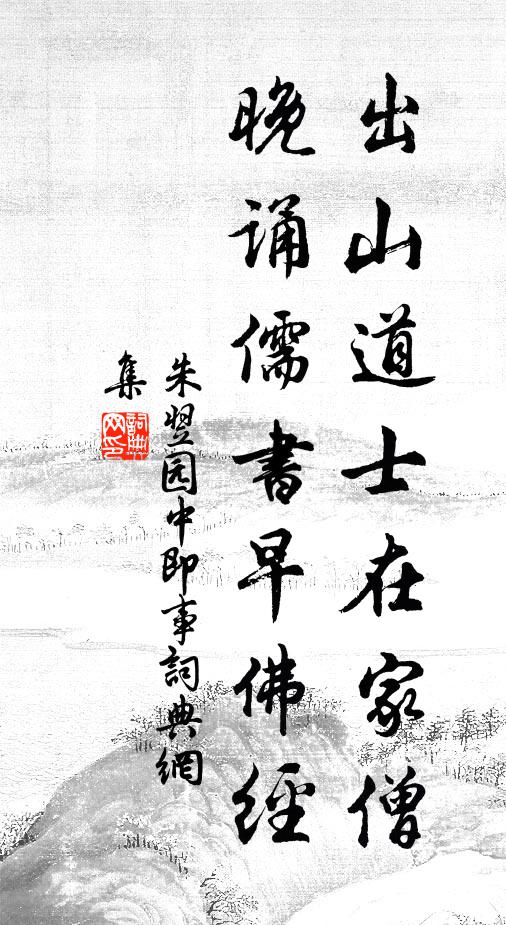 出山道士在家僧
晚诵儒書早佛經
朱翌园中即事詞典網
集
詞典网印